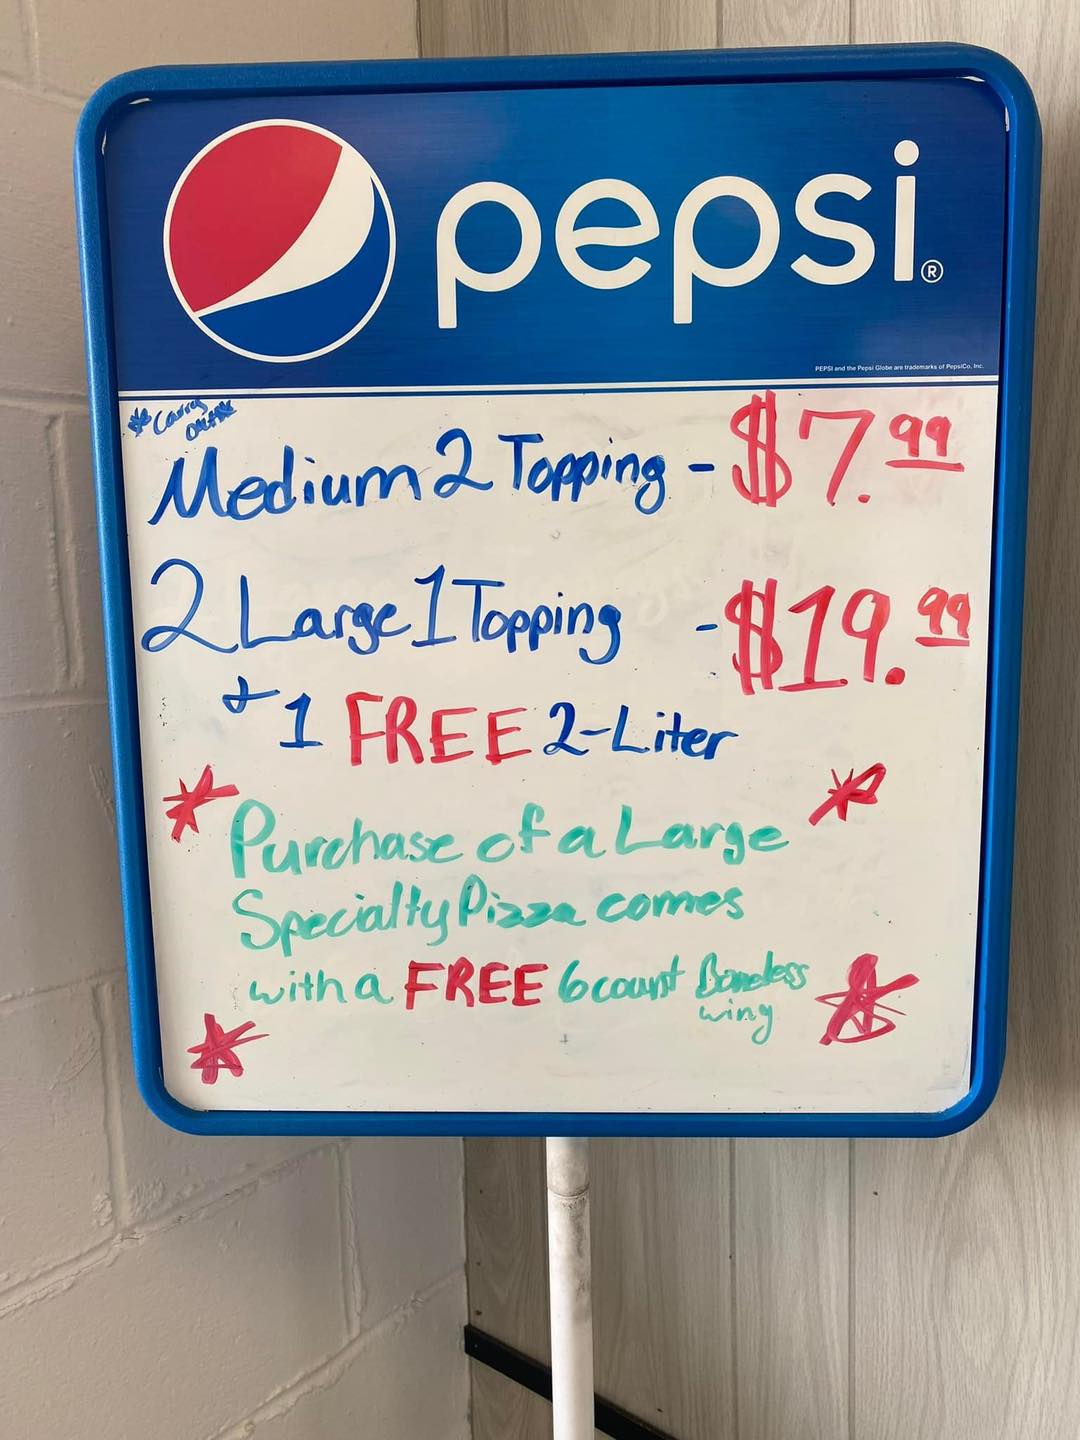 pepsi®
PEPSI and the Pepsi Globe are trademarks of PepsiCo, Inc.
*Carry
Out*
Medium 2 Topping - $7.99
2 Large 1 Topping - $19.99
+ 1 FREE 2-Liter
Purchase of a Large
Specialty Pizza comes
with a FREE 6 count Boneless
wing